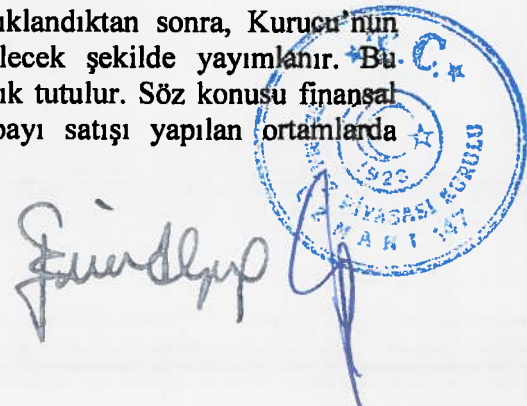 ıklandıktan sonra, Kurucu'nun
lecek şekilde yayımlanır. Bu
ık tutulur. Söz konusu finansal
payı satışı yapılan ortamlarda
T.C.
PİYASASI KURULU
1923